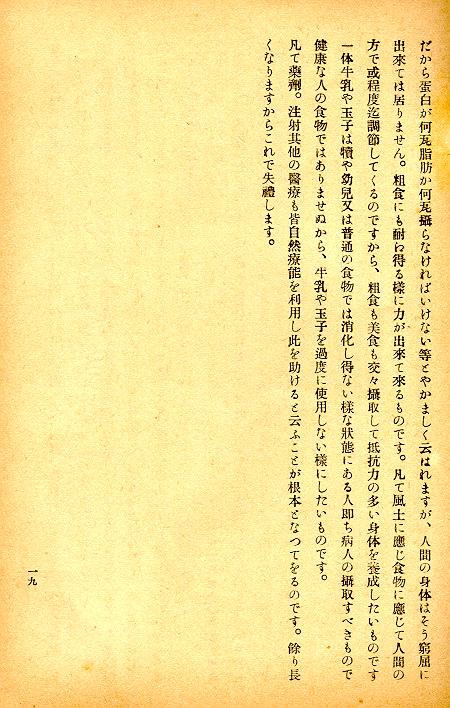 だから蛋白が何瓦脂肪か何瓦攝らなければいけない等とやかましく云はれますが、人間の身体はそう窮屈に
出來ては居りません。粗食にも耐ね得る樣に力が出來て來るものです。凡て風土に應じ食物に應じて人間の
方で或程度迄調節してくるのですから、粗食も美食も交々攝取して抵抗力の多い身体を養成したいものです
一体牛乳や玉子は犢や幼兒又は普通の食物では消化し得ない樣な狀態にある人卽ち病人の攝取すべきもので
健康な人の食物ではありませぬから、牛乳や玉子を過度に使用しない樣にしたいものです。
凡て藥劑。注射其他の醫療も皆自然療能を利用し此を助けると云ふことが根本となつてをるのです。餘り長
くなりますからこれで失禮します。
一九